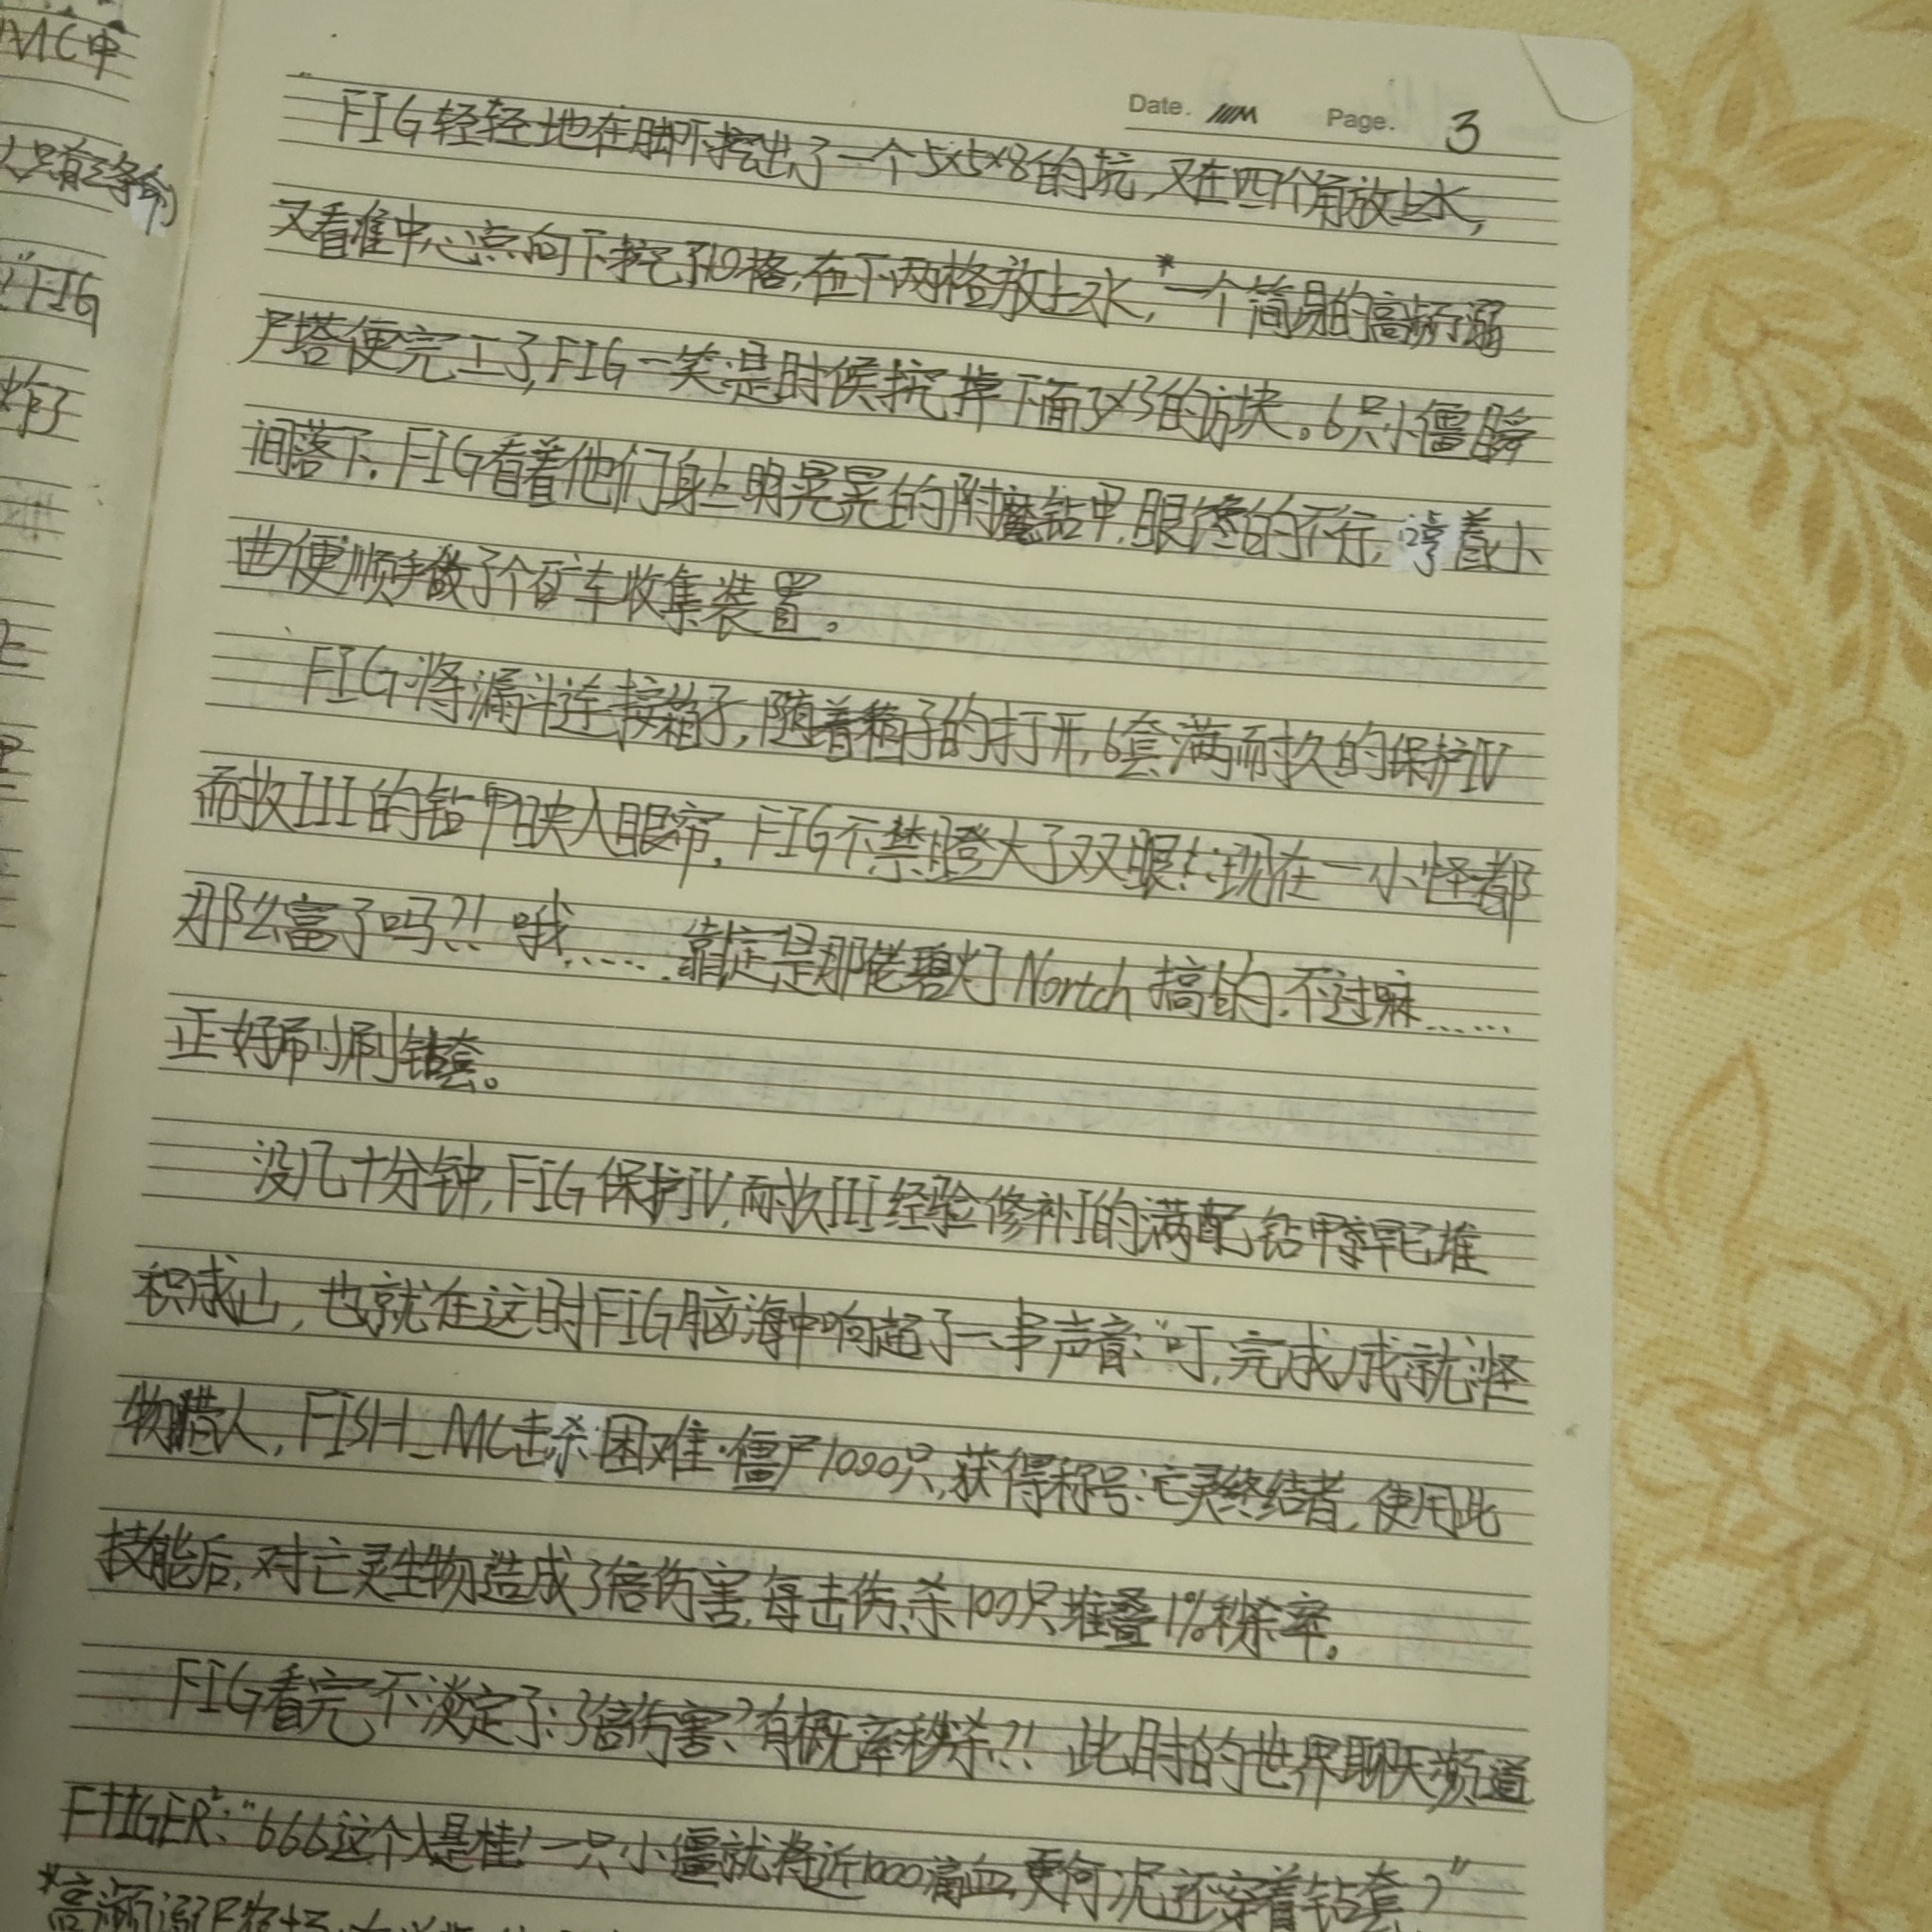 MC中
Date. Page. 3
FIG轻轻地在脚下挖出了一个5×5×8的坑,又在四个角放上水,
又看准中心点向下挖了10格,在下两格放上水,*一个简易的高频溺
尸塔便完工了,FIG一笑是时候挖掉下面3×3的方块。6只小僵瞬
间落下,FIG看着他们身上明晃晃的附魔钻甲,眼馋的不行,哼着小
曲便顺手做了个矿车收集装置。
FIG将漏斗连接箱子,随着箱子的打开,6套满耐久的保护IV
耐久III的钻甲映入眼帘,FIG不禁瞪大了双眼:现在一小怪都
那么富了吗?!哦……肯定是那佬碧灯Nortch搞的,不过嘛……
正好刷刷钻套。
没几十分钟,FIG保护IV,耐久III经验修补I的满配钻甲都早已堆
积成山,也就在这时FIG脑海中响起了一串声音:"叮,完成成就:怪
物猎人,FISH_MC击杀困难·僵尸1000只,获得称号:亡灵终结者,使用此
技能后,对亡灵生物造成3倍伤害,每击伤杀100只堆叠1%秒杀率。
FIG看完不淡定了:3倍伤害?有概率秒杀?!此时的世界聊天频道
FIIGER²:"666这个人是挂!一只小僵就将近1000滴血,更何况还穿着钻套?"
*高频溺尸